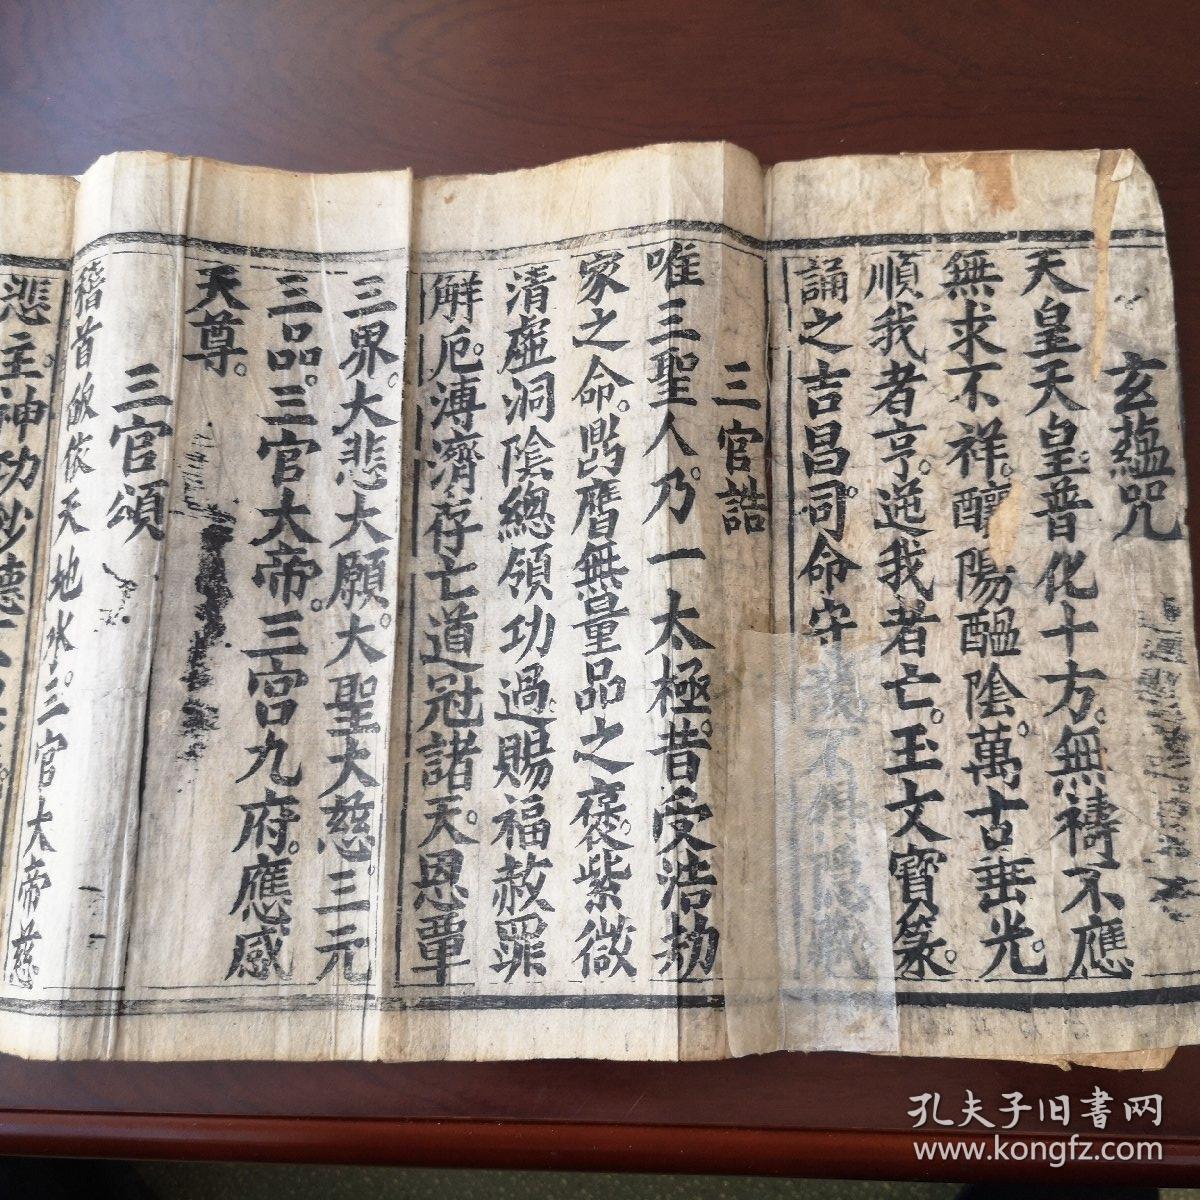 玄蘊咒
天皇天皇。普化十方。無禱不應
無求不祥。釀陽醞陰。萬古垂光。
順我者亨。逆我者亡。玉文寶篆。
誦之吉昌。司命守
三官誥
唯三聖人。乃一太極。昔受浩劫
家之命。鼎膺無量品之褒。紫微
清虛洞陰總領功過。賜福赦罪
解厄。溥濟存亡。道冠諸天。恩覃
三界。大悲大願。大聖大慈。三元
三品。三官大帝。三宮九府。應感
天尊。
三官頌
稽首皈依天地水。三官大帝慈
悲主。神功妙德
孔夫子旧書网
www.kongfz.com